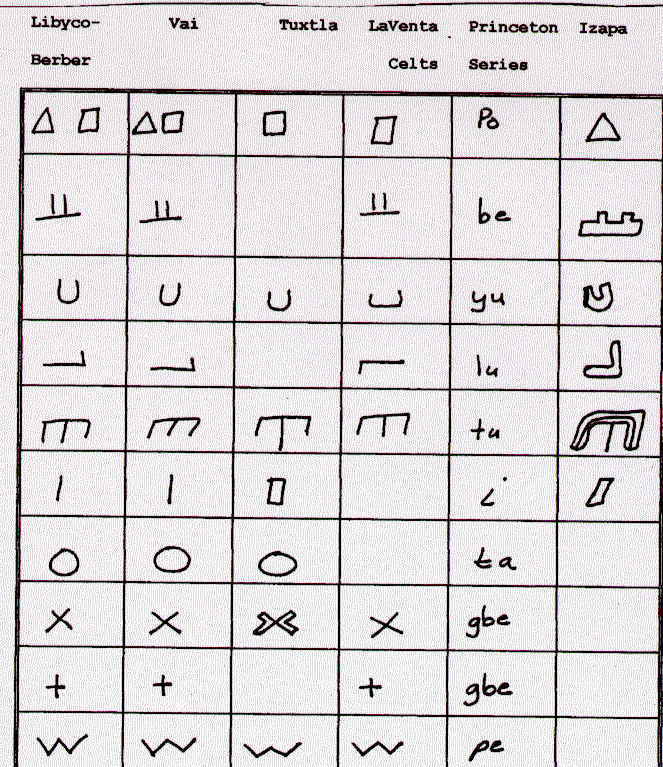 Libyco- Vai Tuxtla LaVenta Princeton Izapa
Berber Celts Series
Po
be
yu
lu
tu
i
ta
gbe
gbe
pe